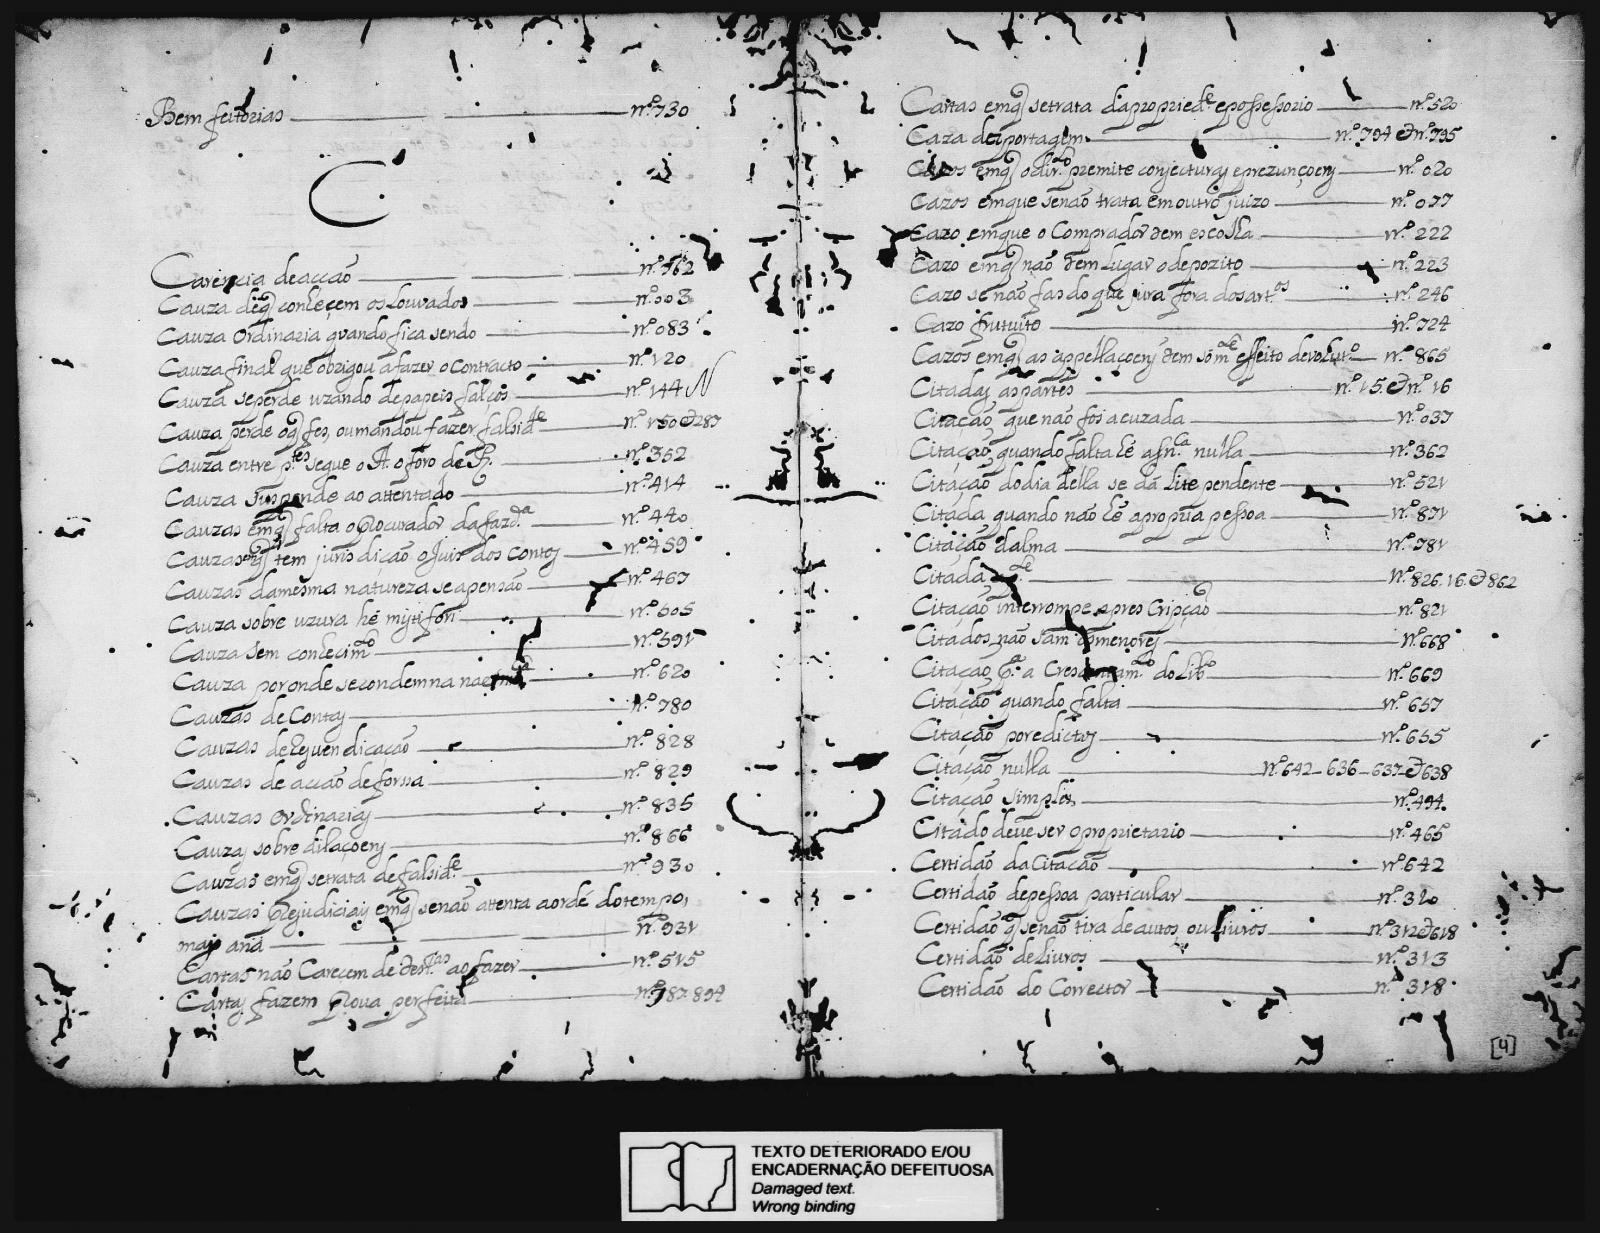 Bem feitorias nº 730
C
Carencia de acção nº 762
Cauza de q̃ conhecem os Louvados nº 003
Cauza Ordinaria quando fica sendo nº 083
Cauza final que obrigou a fazer o Contracto nº 120
Cauza se perde uzando de papeis falços nº 144
Cauza perde o q̃ fes, ou mandou fazer falsid.e nº 150 & 287
Cauza entre p.tes segue o A. o foro do R. nº 352
Cauza suspende ao attentado nº 414
Cauzas em q̃ falta o Procurador da faz.da nº 440
Cauzas em q̃ tem jurisdicão o Juis dos Contos nº 459
Cauzas da mesma natureza se apensão nº 467
Cauza sobre uzura hé mixti fori nº 505
Cauza sem conhecim.to nº 591
Cauza por onde se condemna na nº 620
Cauzas de Contas nº 780
Cauzas de Reguendicação nº 828
Cauzas de acção de forssa nº 829
Cauzas Ordinarias nº 835
Cauzas sobre dilaçoens nº 866
Cauzas em q̃ se trata de falsid.e nº 930
Cauzas Prejudiciais em q̃ se não attenta a ordé do tempo,
mas anã nº 931
Cartas não Carecem de dest.as ao fazer nº 515
Cartas fazem Prova perfeita nº 787. 894
Cartas em q̃ se trata da propried.e e possessorio nº 520
Caza de portagem nº 794 & nº 795
Cazos em q̃ o dir.to premite conjecturas e prezunçoens nº 020
Cazos em que se não trata em outro juizo nº 077
Cazo em que o Comprador tem escolha nº 222
Cazo em q̃ não tem Lugar o depozito nº 223
Cazo se não faz do que jura fora dos art.os nº 246
Cazo frutuito nº 724
Cazos em q̃ as appellacoens tem sóm.te effeito devolut.o nº 865
Citadas as partes nº 15. & nº 16
Citação que não foi acuzada nº 037
Citação quando falta hé a sn.ca nulla nº 362
Citação do dia della se dá Lite pendente nº 521
Citada quando não hé a propria pessoa nº 871
Citação da alma nº 781
Citada nº 826. 16. & 862
Citação interrompe a pres Cripção nº 821
Citados não sam os menores nº 668
Citação p.a a Crescentam.to do Lib.o nº 669
Citação quando falta nº 657
Citação por edictos nº 655
Citação nulla nº 642 - 636 - 637 & 638
Citação simples nº 494.
Citado deve ser o proprietario nº 465
Certidão da Citação nº 642
Certidão de pessoa particular nº 310
Certidão q̃ se não tira de autos, ou Livros nº 312 & 618
Certidão de Livros nº 313
Certidão do Corrector nº 318
[4]
TEXTO DETERIORADO E/OU
ENCADERNAÇÃO DEFEITUOSA
Damaged text.
Wrong binding